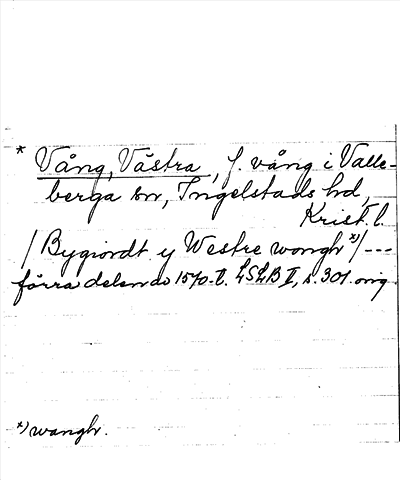 * Vång, Västra, f. vång i Valle-
berga sn, Ingelstads hd,
Krist. l.
/ Bygiordt y Westre wongh *)/ ---
förra delen av 1570-t. LSLB II, s. 301. orig.
*) wangh.